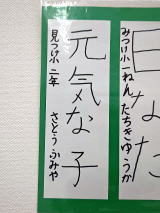 元気な子
見つけ小 二年
さとう ふみや
みつけ小 一ねん たちき ゆうが